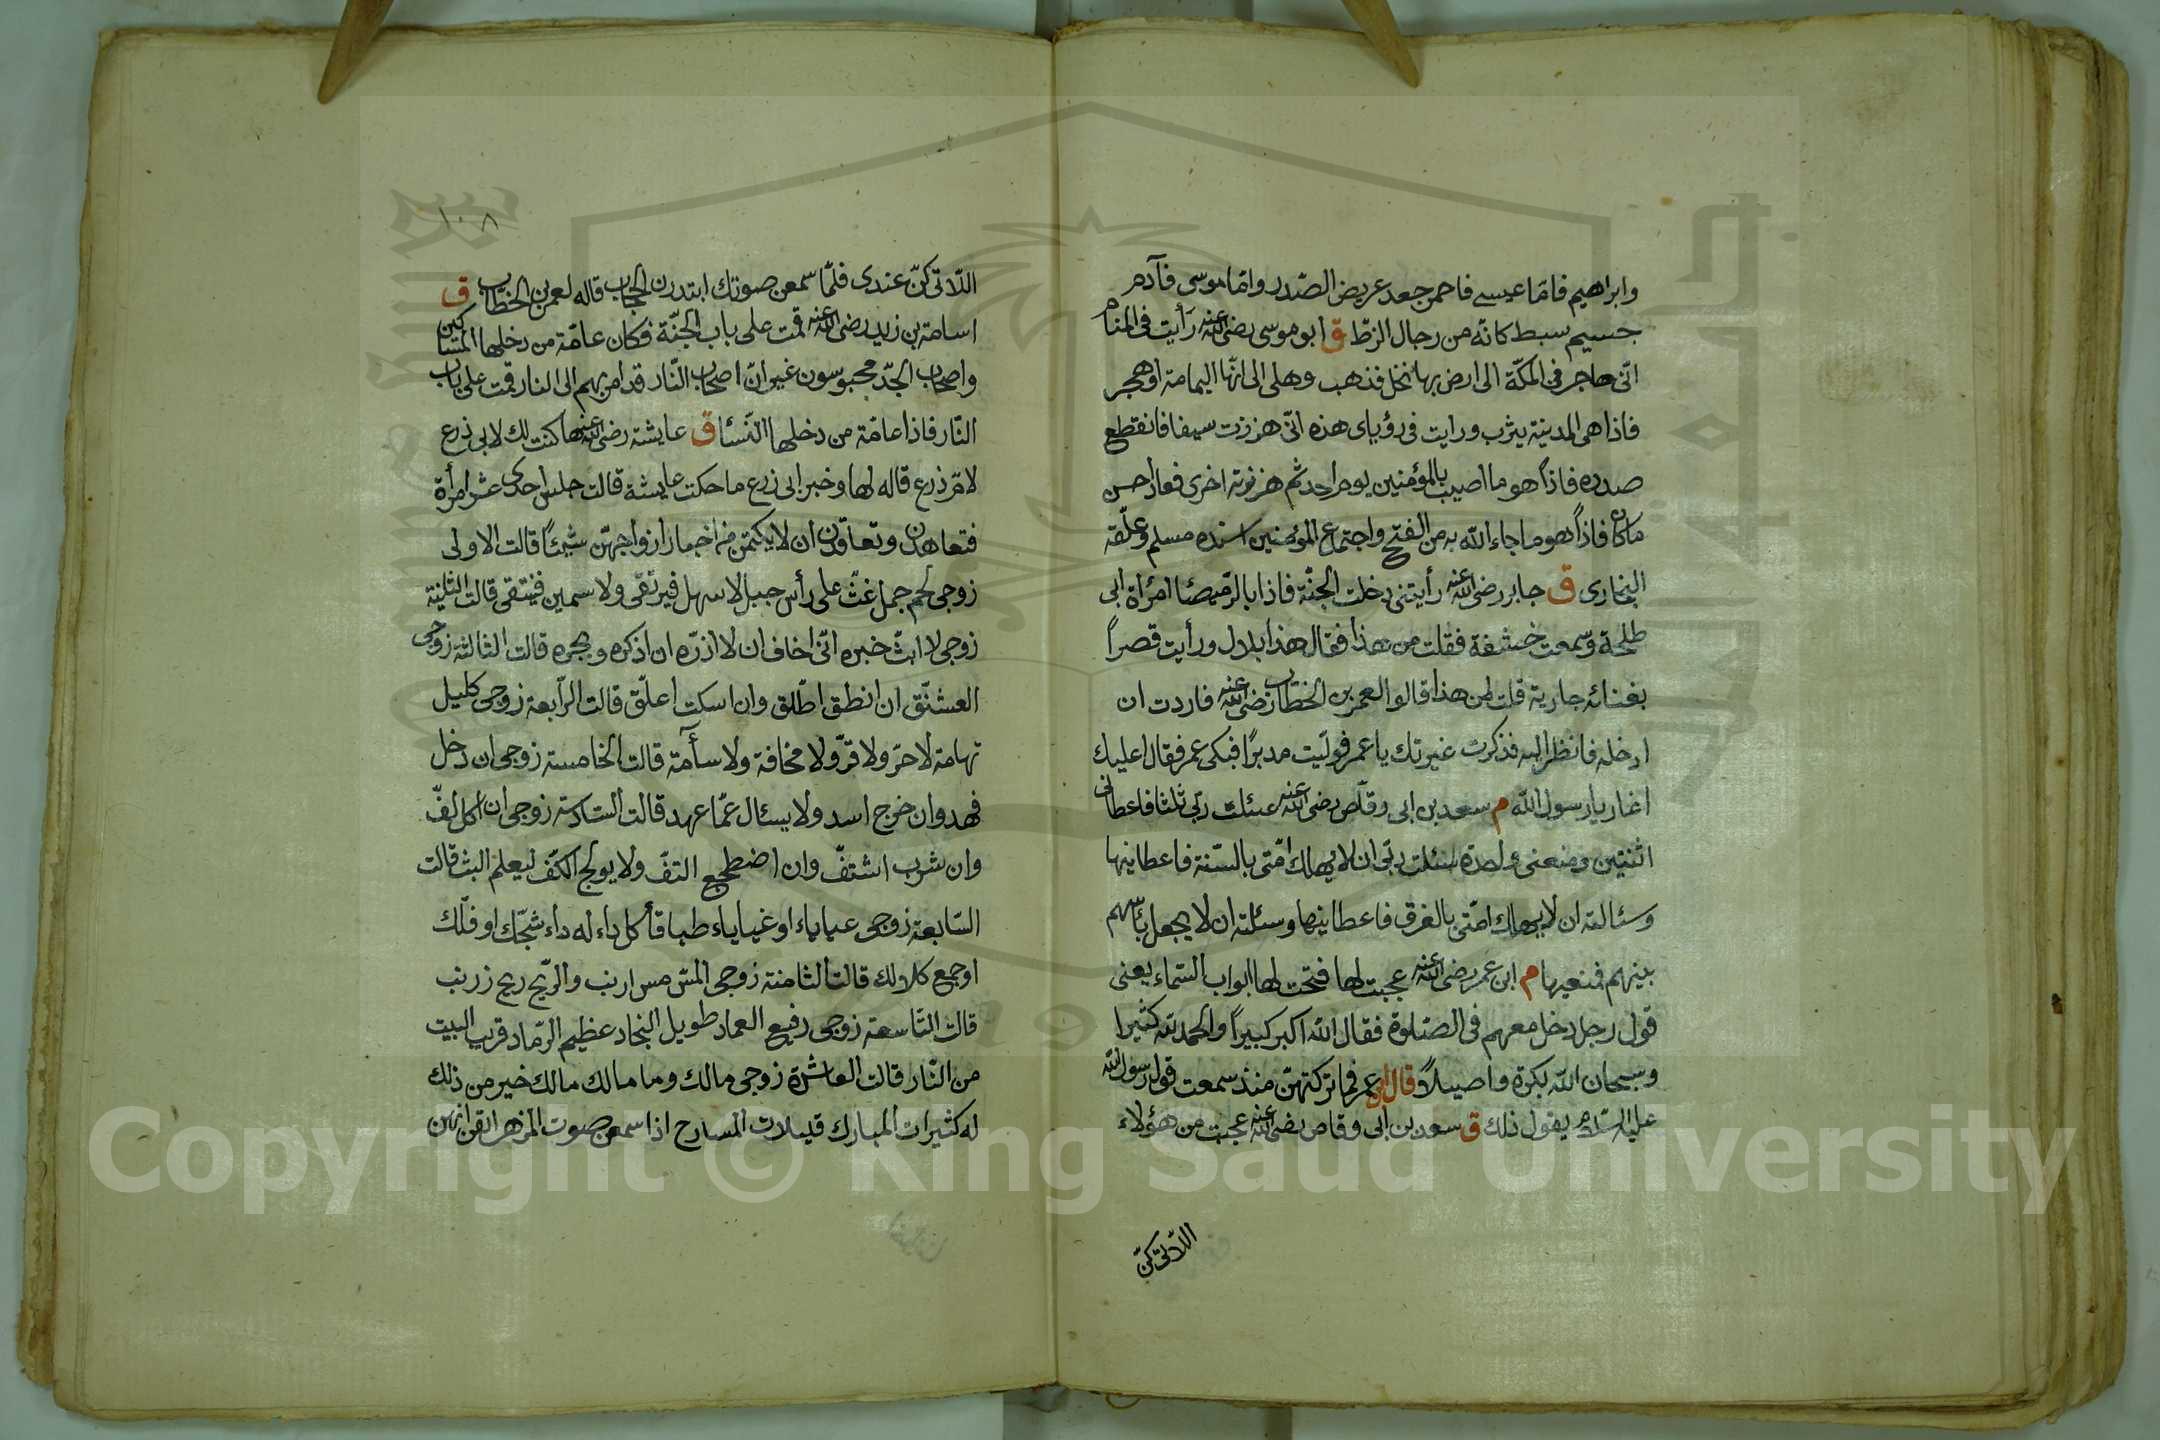 وابراهيم فامّا عيسى فاحمر جعد عريض الصّدر وامّا موسى فآدم
جسيم سبط كانّه من رجال الزطّ ق ابو موسى رضى الله عنه رأيت فى المنام
انّى هاجر فى المكّة الى ارض بها نخل فذهب وهلى الى انّها اليمامة او هجر
فاذا هى المدينة يثرب ورايت فى رؤياى هذه انّى هززت سيفا فانقطع
صدره فاذا هو ما اصيب بالمؤمنين يوم احد ثم هززته اخرى فعاد احسن
ما كان فاذاً هو ما جاء الله به من الفتح واجتماع المؤمنين اسنده مسلم وعلّقه
البخارى ق جابر رضى الله عنه رأيتنى دخلت الجنّة فاذا بالرّميصا امرأة ابى
طلحة وسمعت خشفة فقلت من هذا فقال هذا بلال ورأيت قصراً
بفنائه جارية قلت لمن هذا قالوا لعمر بن الخطاب رضى الله عنه فاردت ان
ادخله فانظر اليه فذكرت غيرتك يا عمر فولّيت مدبرًا فبكى عمر فقال اعليك
اغار يا رسول الله م سعد بن ابى وقّاص رضى الله عنه سئلت ربّى ثلثا فاعطانى
اثنتين ومنعنى واحدة سئلت ربّى ان لا يهلك امّتى بالسّنة فاعطانيها
وسئالته ان لا يهلك امّتى بالغرق فاعطانيها وسئلته ان لا يجعل بأسهم
بينهم فمنعيها م ابن عمر رضى الله عنه عجبت لها فتحت لها ابواب السّماء يعنى
قول رجل دخل معهم فى الصّلوة فقال الله اكبر كبيراً والحمد لله كثيرا
وسبحان الله بكرة واصيلاً قال ابن عمر فما تركتهنّ منذ سمعت قول رسول الله
عليه السّلام يقول ذلك ق سعد بن ابى وقاص رضى الله عنه عجبت من هؤلاء
اللّاتى كنّ
١٠٨
اللّاتى كنّ عندى فلمّا سمعن صوتك ابتدرن الحجاب قاله لعمر بن الخطاب ق
اسامة بن زيد رضى الله عنه قمت على باب الجنّة فكان عامّة من دخلها المساكين
واصحاب الجدّ محبوسون غير انّ اصحاب النّار قد امر بهم الى النار قمت على باب
النّار فاذا عامّة من دخلها النّسا ق عايشة رضى الله عنها كنت لك لابى ذرع
لامّ ذرع قاله لها وخبر ابى زرع ما حكت عايشة قالت جلس احدى عشر امرأة
فتعاهدن وتعاقدن ان لا يكتمن من اخبار ازواجهنّ شيئاً قالت الاولى
زوجى لحم جمل غثّ على رأس جبل لا سهل فيرتقى ولا سمين فينتقى قالت الثانية
زوجى لا ابثّ خبره انّى اخاف ان لا اذره ان اذكره وبجره قالت الثالثة زوجى
العشنّق ان انطق اطّلق وان اسكت اعلّق قالت الرّابعة زوجى كليل
تهامة لا حرّ ولا قرّ ولا مخافة ولا سآمة قالت الخامسة زوجى ان دخل
فهد وان خرج اسد ولا يسئال عمّا عهد قالت السّادسة زوجى ان اكل لفّ
وان شرب اشتفّ وان اضطجع التفّ ولا يولج الكفّ ليعلم البثّ قالت
السّابعة زوجى عياياء او غياياء طباقأ كل داء له داء شجّك او فلّك
او جمع كلا لك قالت الثامنة زوجى المسّ مس ارنب والرّيح ريح زرنب
قالت التّاسعة زوجى رفيع العماد طويل النجاد عظيم الرّماد قريب البيت
من النّار قالت العاشرة زوجى مالك وما مالك مالك خير من ذلك
له كثيرات المبارك قليلات المسارح اذا سمعن صوت المزهر ايقن انّهن
Copyright © King Saud University